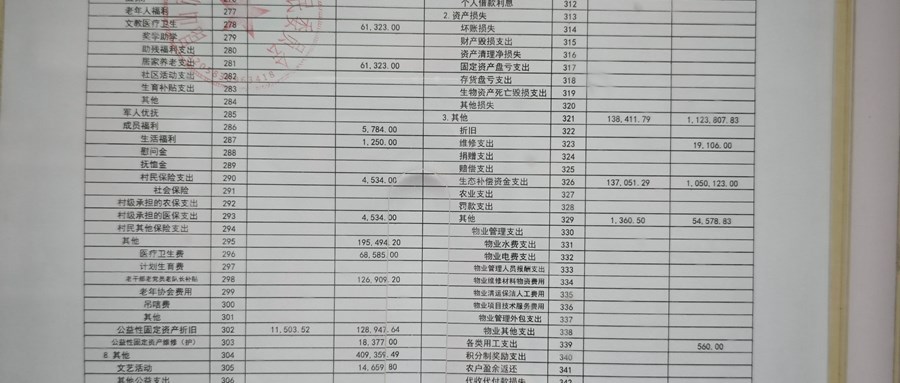 个人借款利息 312
老年人福利 277 2.资产损失 313
文教医疗卫生 278 61,323.00 坏账损失 314
奖学助学 279 财产毁损支出 315
助残福利支出 280 资产清理净损失 316
居家养老支出 281 61,323.00 固定资产盘亏支出 317
社区活动支出 282 存货盘亏支出 318
生育补贴支出 283 生物资产死亡毁损支出 319
其他 284 其他损失 320
军人优抚 285 3.其他 321 138,411.79 1,123,807.83
成员福利 286 5,784.00 折旧 322
生活福利 287 1,250.00 维修支出 323 19,106.00
慰问金 288 捐赠支出 324
抚恤金 289 赔偿支出 325
村民保险支出 290 4,534.00 生态补偿资金支出 326 137,051.29 1,050,123.00
社会保险 291 农业支出 327
村级承担的农保支出 292 罚款支出 328
村级承担的医保支出 293 4,534.00 其他 329 1,360.50 54,578.83
村民其他保险支出 294 物业管理支出 330
其他 295 195,494.20 物业水费支出 331
医疗卫生费 296 68,585.00 物业电费支出 332
计划生育费 297 物业管理人员报酬支出 333
老干部老党员老队长补贴 298 126,909.20 物业维修材料物资费用 334
老年协会费用 299 物业清运保洁人工费用 335
吊唁费 300 物业项目技术服务费用 336
其他 301 物业管理外包支出 337
公益性固定资产折旧 302 11,503.52 128,947.64 物业其他支出 338
公益性固定资产维修（护） 303 18,377.00 各类用工支出 339 560.00
8.其他 304 409,359.49 积分制奖励支出 340
文艺活动 305 14,659.80 农户盈余返还 341
其他公益支出 306 代收代付款损失 342